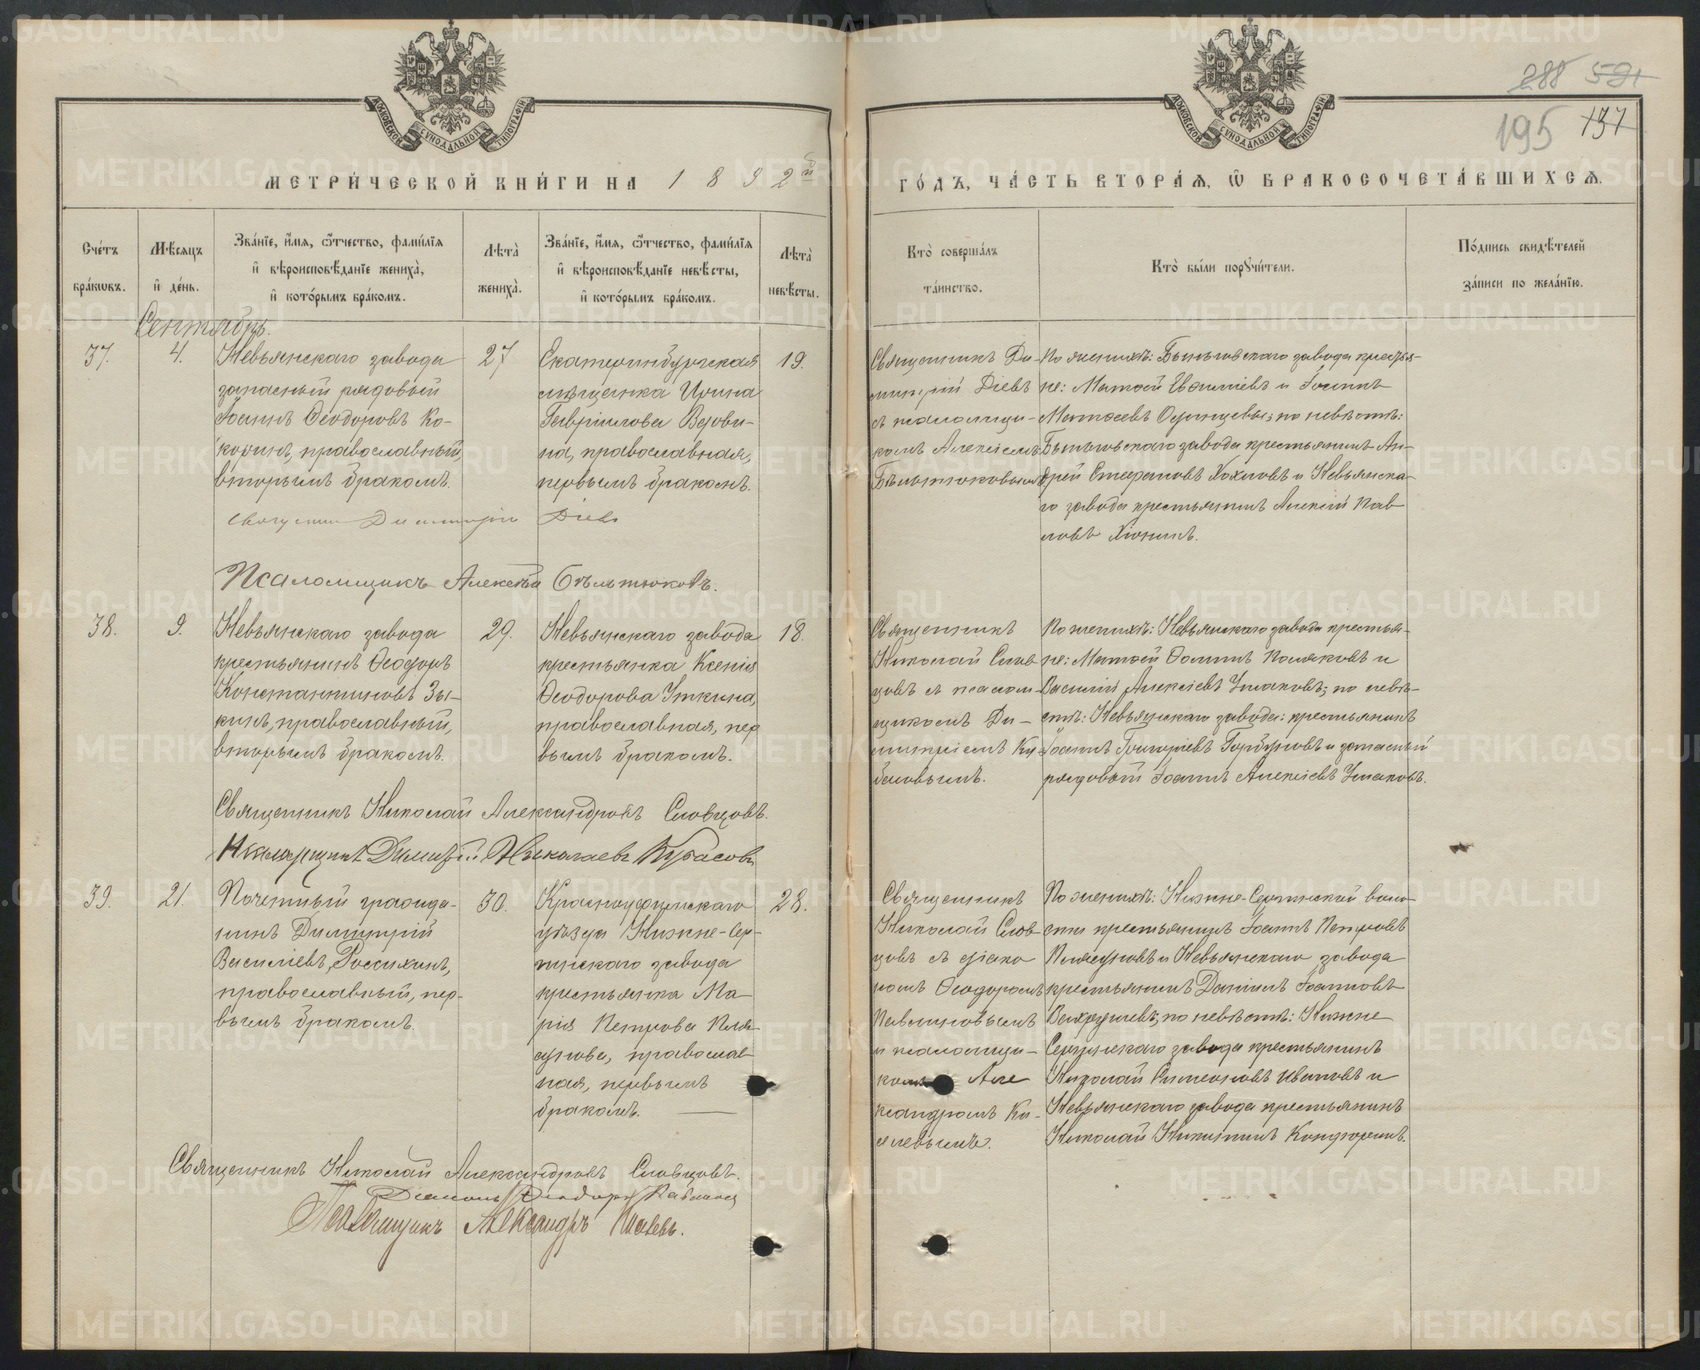 288 591
195 197
МЕТРИ́ЧЕСКОЙ КНИ́ГИ НА 1892й
ГО́ДЪ, ЧА́СТЬ ВТОРА́Ѧ, Ѡ҆ БРАКОСОЧЕТА́ВШИХСѦ.
Сче́тъ бра́кѡвъ.
Мѣ́сѧцъ и҆ де́нь.
Зва́нїе, и҆́мѧ, ѻ҆́тчество, фамѝлїѧ
и҆ вѣроисповѣ́данїе жениха̀,
и҆ кото́рымъ бра́комъ.
Лѣта̀ жениха̀.
Зва́нїе, и҆́мѧ, ѻ҆́тчество, фамѝлїѧ
и҆ вѣроисповѣ́данїе невѣ́сты,
и҆ кото́рымъ бра́комъ.
Лѣта̀ невѣ́сты.
Кто̀ соверша́лъ та́инство.
Кто̀ бы́ли порꙋчи́тели.
По́дпись свидѣ́телей
за́писи по жела́нїю.
Сентябрь.
37.
4.
Невьянскаго завода
запасный рядовый
Іоаннъ Ѳеодоровъ Ко-
коринъ, православный,
вторымъ бракомъ.
27
Екатеринбургская
мѣщанка Ирина
Гавріилова Вдови-
на, православная,
первымъ бракомъ.
19.
Священникъ Ди-
митрій Діевъ
съ псаломщи-
комъ Алексіемъ
Бѣльтюковымъ
По женихѣ: Быньговскаго завода крестья-
не: Матѳей и Іоаннъ
Матѳеевъ Одинцевы; по невѣстѣ:
Быньговскаго завода крестьянинъ Ан-
дрей Стефановъ Хохловъ и Невьянска-
го завода крестьянинъ Алексій Пав-
ловъ Хіонинъ.
Священникъ Димитрій Діевъ
Псаломщикъ Алексѣй Бѣльтюковъ.
38.
9.
Невьянскаго завода
крестьянинъ Ѳеодоръ
Константиновъ Зы-
кинъ, православный,
вторымъ бракомъ.
29.
Невьянскаго завода
крестьянка Ксенія
Ѳеодорова Уткина,
православная, пер
вымъ бракомъ.
18.
Священникъ
Николай Слов
цовъ съ псалом-
щикомъ Ди-
митріемъ Ку-
басовымъ.
По женихѣ: Невьянскаго завода крестья-
не: Матѳей Ѳоминъ Поляковъ и
Василій Алексіевъ Ушаковъ; по невѣ-
стѣ: Невьянскаго завода: крестьянинъ
Іоаннъ Григоріевъ Горбуновъ и запасный
рядовый Іоаннъ Алексіевъ Ушаковъ.
Священникъ Николай Александровъ Словцовъ.
Псаломщикъ Димитрій Николаевъ Кубасовъ
39.
21.
Почетный гражда-
нинъ Димитрій
Василіевъ Россихинъ,
православный, пер-
вымъ бракомъ.
30.
Красноуфимскаго
уѣзда Нижне-Сер-
гинскаго завода
крестьянка Ма-
рія Петрова Пля-
сунова, православ
ная, первымъ
бракомъ.
28.
Священникъ
Николай Слов
цовъ съ діако
номъ Ѳеодоромъ
Павлиновымъ
и псаломщи-
комъ Але
ксандромъ Ки-
селевымъ.
По женихѣ: Нижне-Сергинской воло-
сти крестьянинъ Іоаннъ Петровъ
Плясуновъ и Невьянскаго завода
крестьянинъ Даніилъ Іоанновъ
Вахрушевъ; по невѣстѣ: Нижне
Сергинскаго завода крестьянинъ
Николай Симеоновъ Ивановъ и
Невьянскаго завода крестьянинъ
Николай Никитинъ Кондюринъ.
Священникъ Николай Александровъ Словцовъ.
Діаконъ Ѳеодоръ Павлиновъ
Псаломщикъ Александръ
METRIKI.GASO-URAL.RU